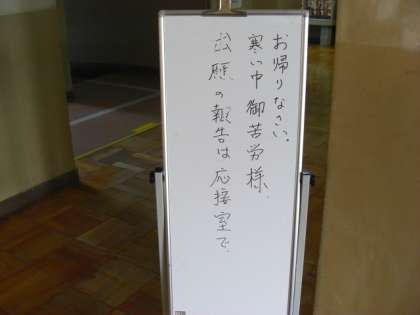 お帰りなさい。
寒い中御苦労様。
出願の報告は応接室で。